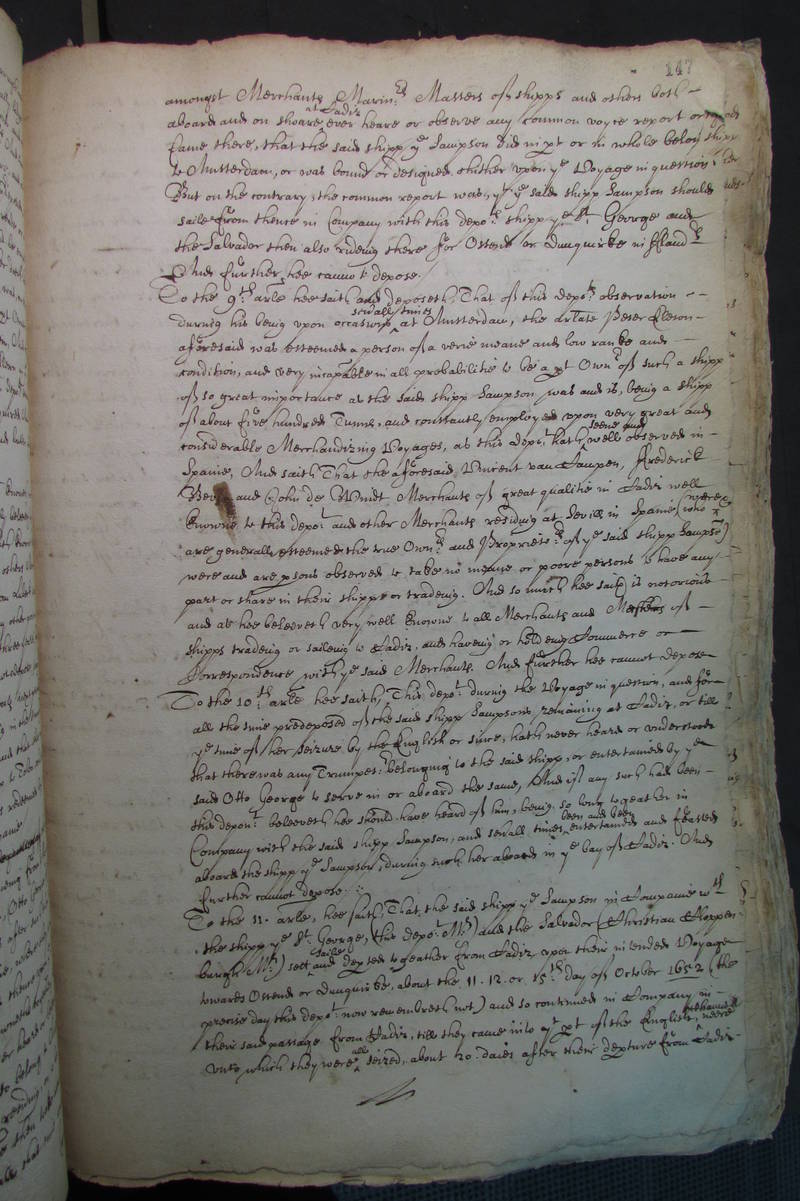 147
amongst Merchants Marin:rs Masters of shipps and others both
aboard and on shoare at Cadiz ever heare or observe any common voyce report or
fame there, that the said shipp ye Sampson did in pt or in whole belong
to Amsterdam, or was bound or designed thither upon ye Voyage in question
But on the contrary, the common report was, yt ye said shipp Sampson should
saile from thence in Company with this depots shipp ye St George and
the Salvador then also rideing there for Ostend or Dunquirke in fland:rs
And further hee cannot depose
To the 9th arle hee saith and deposeth That of this depots observation
during his being upon occasions severall times at Amsterdam, the arlate Peter
aforesaid was esteemed a person of a verie meane and low ranke and
condition, and very incapable in all probabilitie to be a pt Owner of such a shipp
of so great importance as the said shipp Sampson was and is, being a shipp
of about five hundred Tunns, and constantly employed upon very great and
considerable Merchandizing Voyages, as this depot hath seene and well observed in
Spaine, And saith That the aforesaid, Vincent van Campen, Frederick
and John de Windt Merchants of great qualitie in Cadiz well
knowne to this depot and other Merchants residing at Sevill in Spaine (who were &
are generally esteemed the true Own:rs and Propriet:rs of ye said shipp Sampson)
were and are psons observed to take no meane or poore persons to have any
part or share in their shipps or tradeing. And so much hee saith is notorious
and as hee beleeveth very well knowne to all Merchants and Masters of
shipps tradeing or saileing to Cadiz, and haveing or holding Commerce or
Correspondence with ye said Merchants. And further hee cannot depose
To the 10th arle hee saith, This depot during the Voyage in question, and for
all the time predeposed of the said shipp Sampsons remaining at Cadiz, or till
ye time of her seizure by the English or since, hath never heard or understood
that there was any Trumpet:r belonging to the said shipp, or entertained by ye
said Otto George to serve in or aboard the same, And if any such had been
this depont beleeveth hee should have heard of him, being so long togeather in
Company with the said shipp Sampson, and severall times been and bee entertained and feasted
aboard the shipp ye Sampson, during such her aboad in ye bay of Cadiz. And
further cannot depose.
To the 11. arle, hee saith, That, the said shipp ye Sampson in Companie wth
the shipp ye St George, (this depots Mr) and the Salvador (Christian Cloppen
burgh Mr) sett saile and depted togeather from Cadiz upon their intended Voyage
towards Ostend or Dunquirke, about the 11. 12. or 15th day of October 1652 (the
precise day this depot now remembreth not) and so continued in Company in
their said passage from Cadiz, till they came into yt pt of the English Channell neere
unto which they were all seized, about 20. daies after their depture from Cadiz